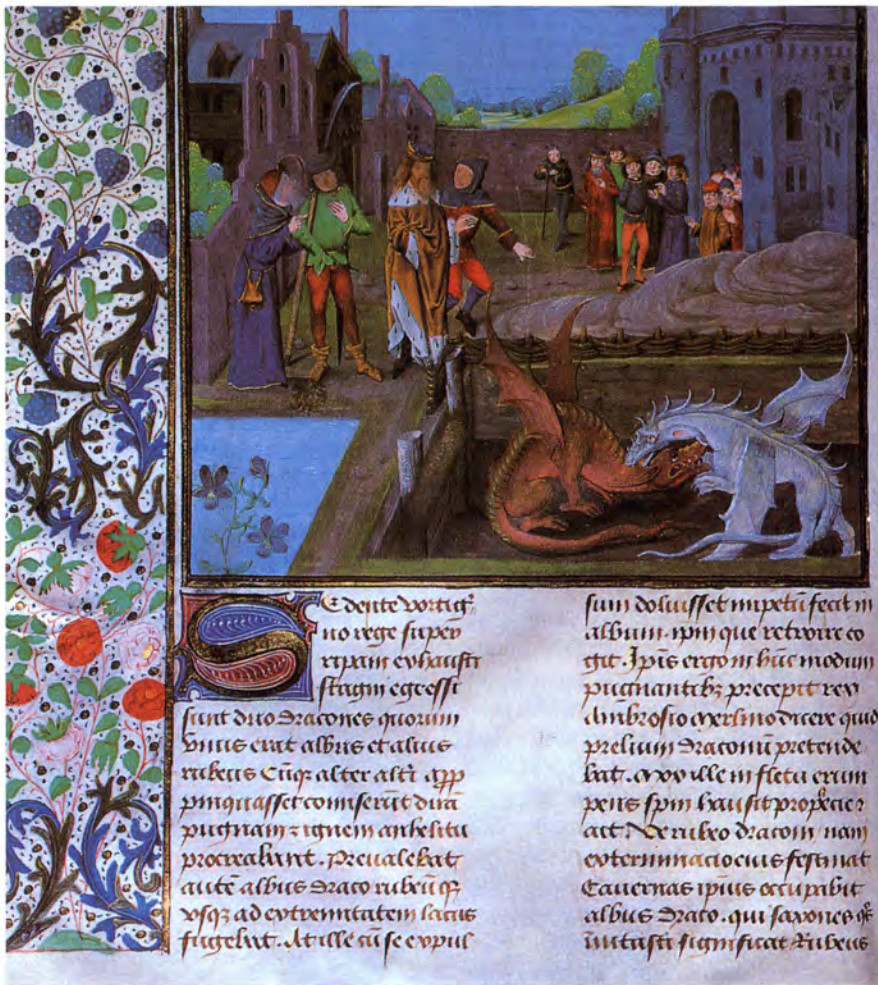 Sedente vortig᷑
no rege super
ripam exhausti
stagni egressi
sunt duo dracones quorum
vnus erat albus et alius
rubeus Cūq; alter alt̄i app̄
pinquasset comiserūt dirā
pugnam ⁊ ignem anhelitu
procreabant. Preualebat
autē albus draco rubeū q;
vsq; ad extremitatem lacus
fugebat. At ille cū se expul
sum doluisset impetū fecit in
album. ip̄m que retroire co
git. Ip̄is ergo in hūc modum
pugnantib; precepit rex
Ambrosio merlino dicere quid
prelium draconū pretende
bat. Mox ille in fletū erum
pens sp̄m hausit prophecie ⁊
ait. Ve rubeo draconi nam
exterminacio eius festinat
Cauernas ip̄ius occupabit
albus draco. qui saxones q̄s
inuitasti significat Rubeus